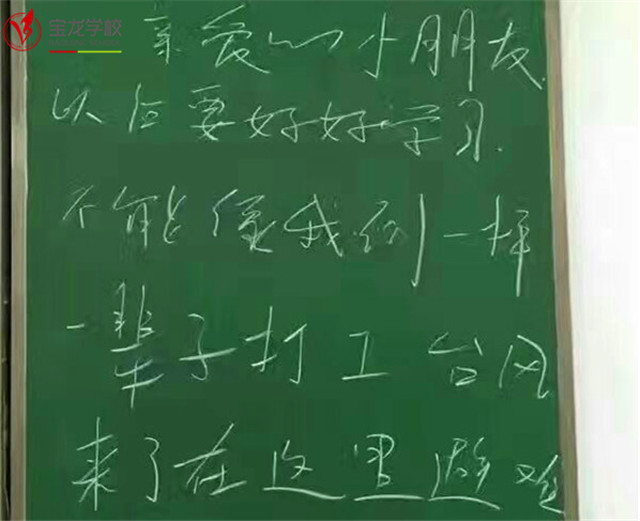 宝龙学校
亲爱的小朋友
以后要好好学习.
不能像我们一样
一辈子打工 台风
来了在这里避难